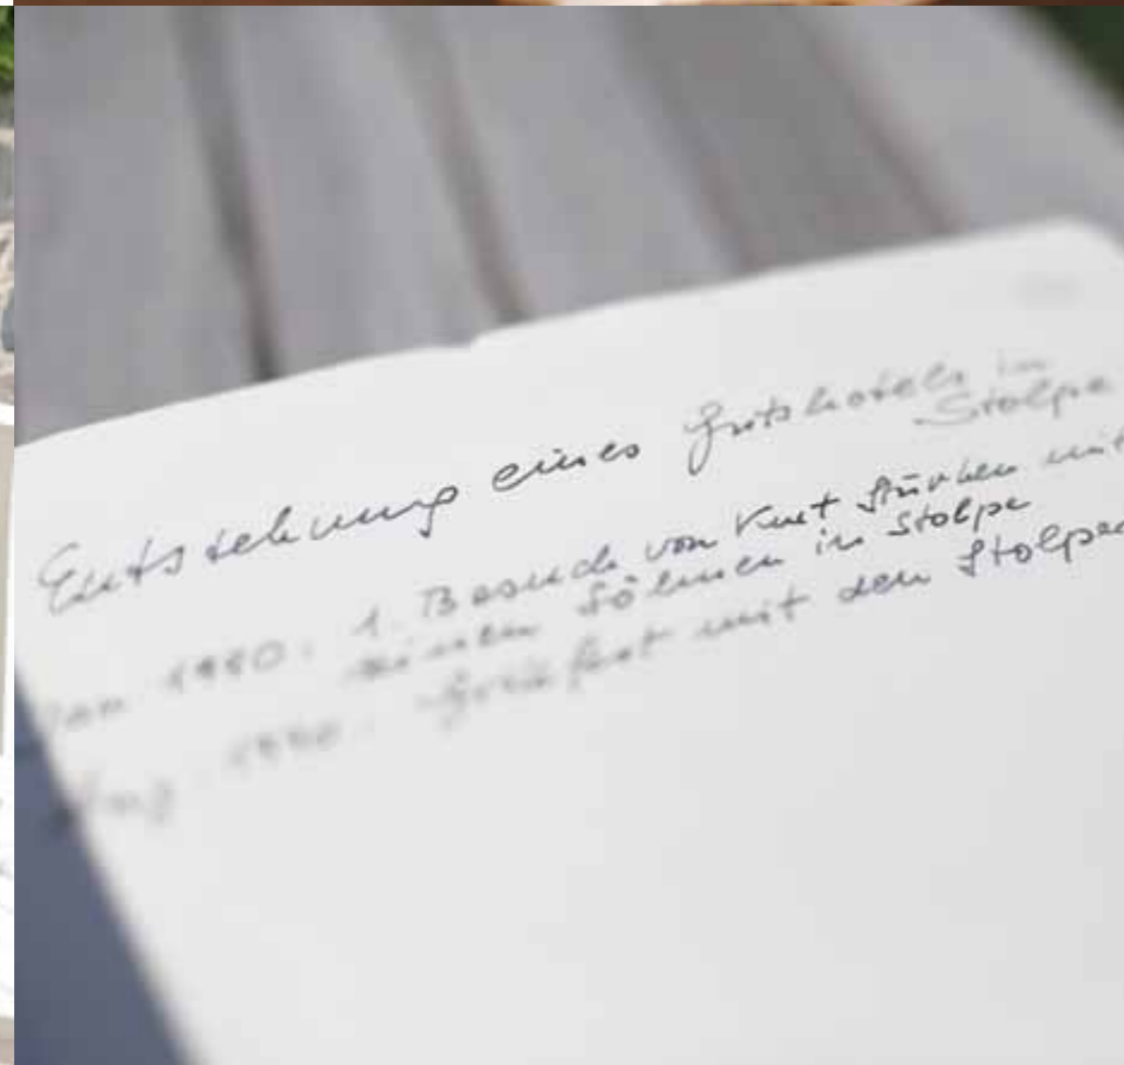 Entstehung eines Gutshotels in
Stolpe
Jan 1990. 1. Besuch von Kurt Stürken mit
seinen Söhnen in Stolpe
Aug. 1990. Grillfest mit den Stolper